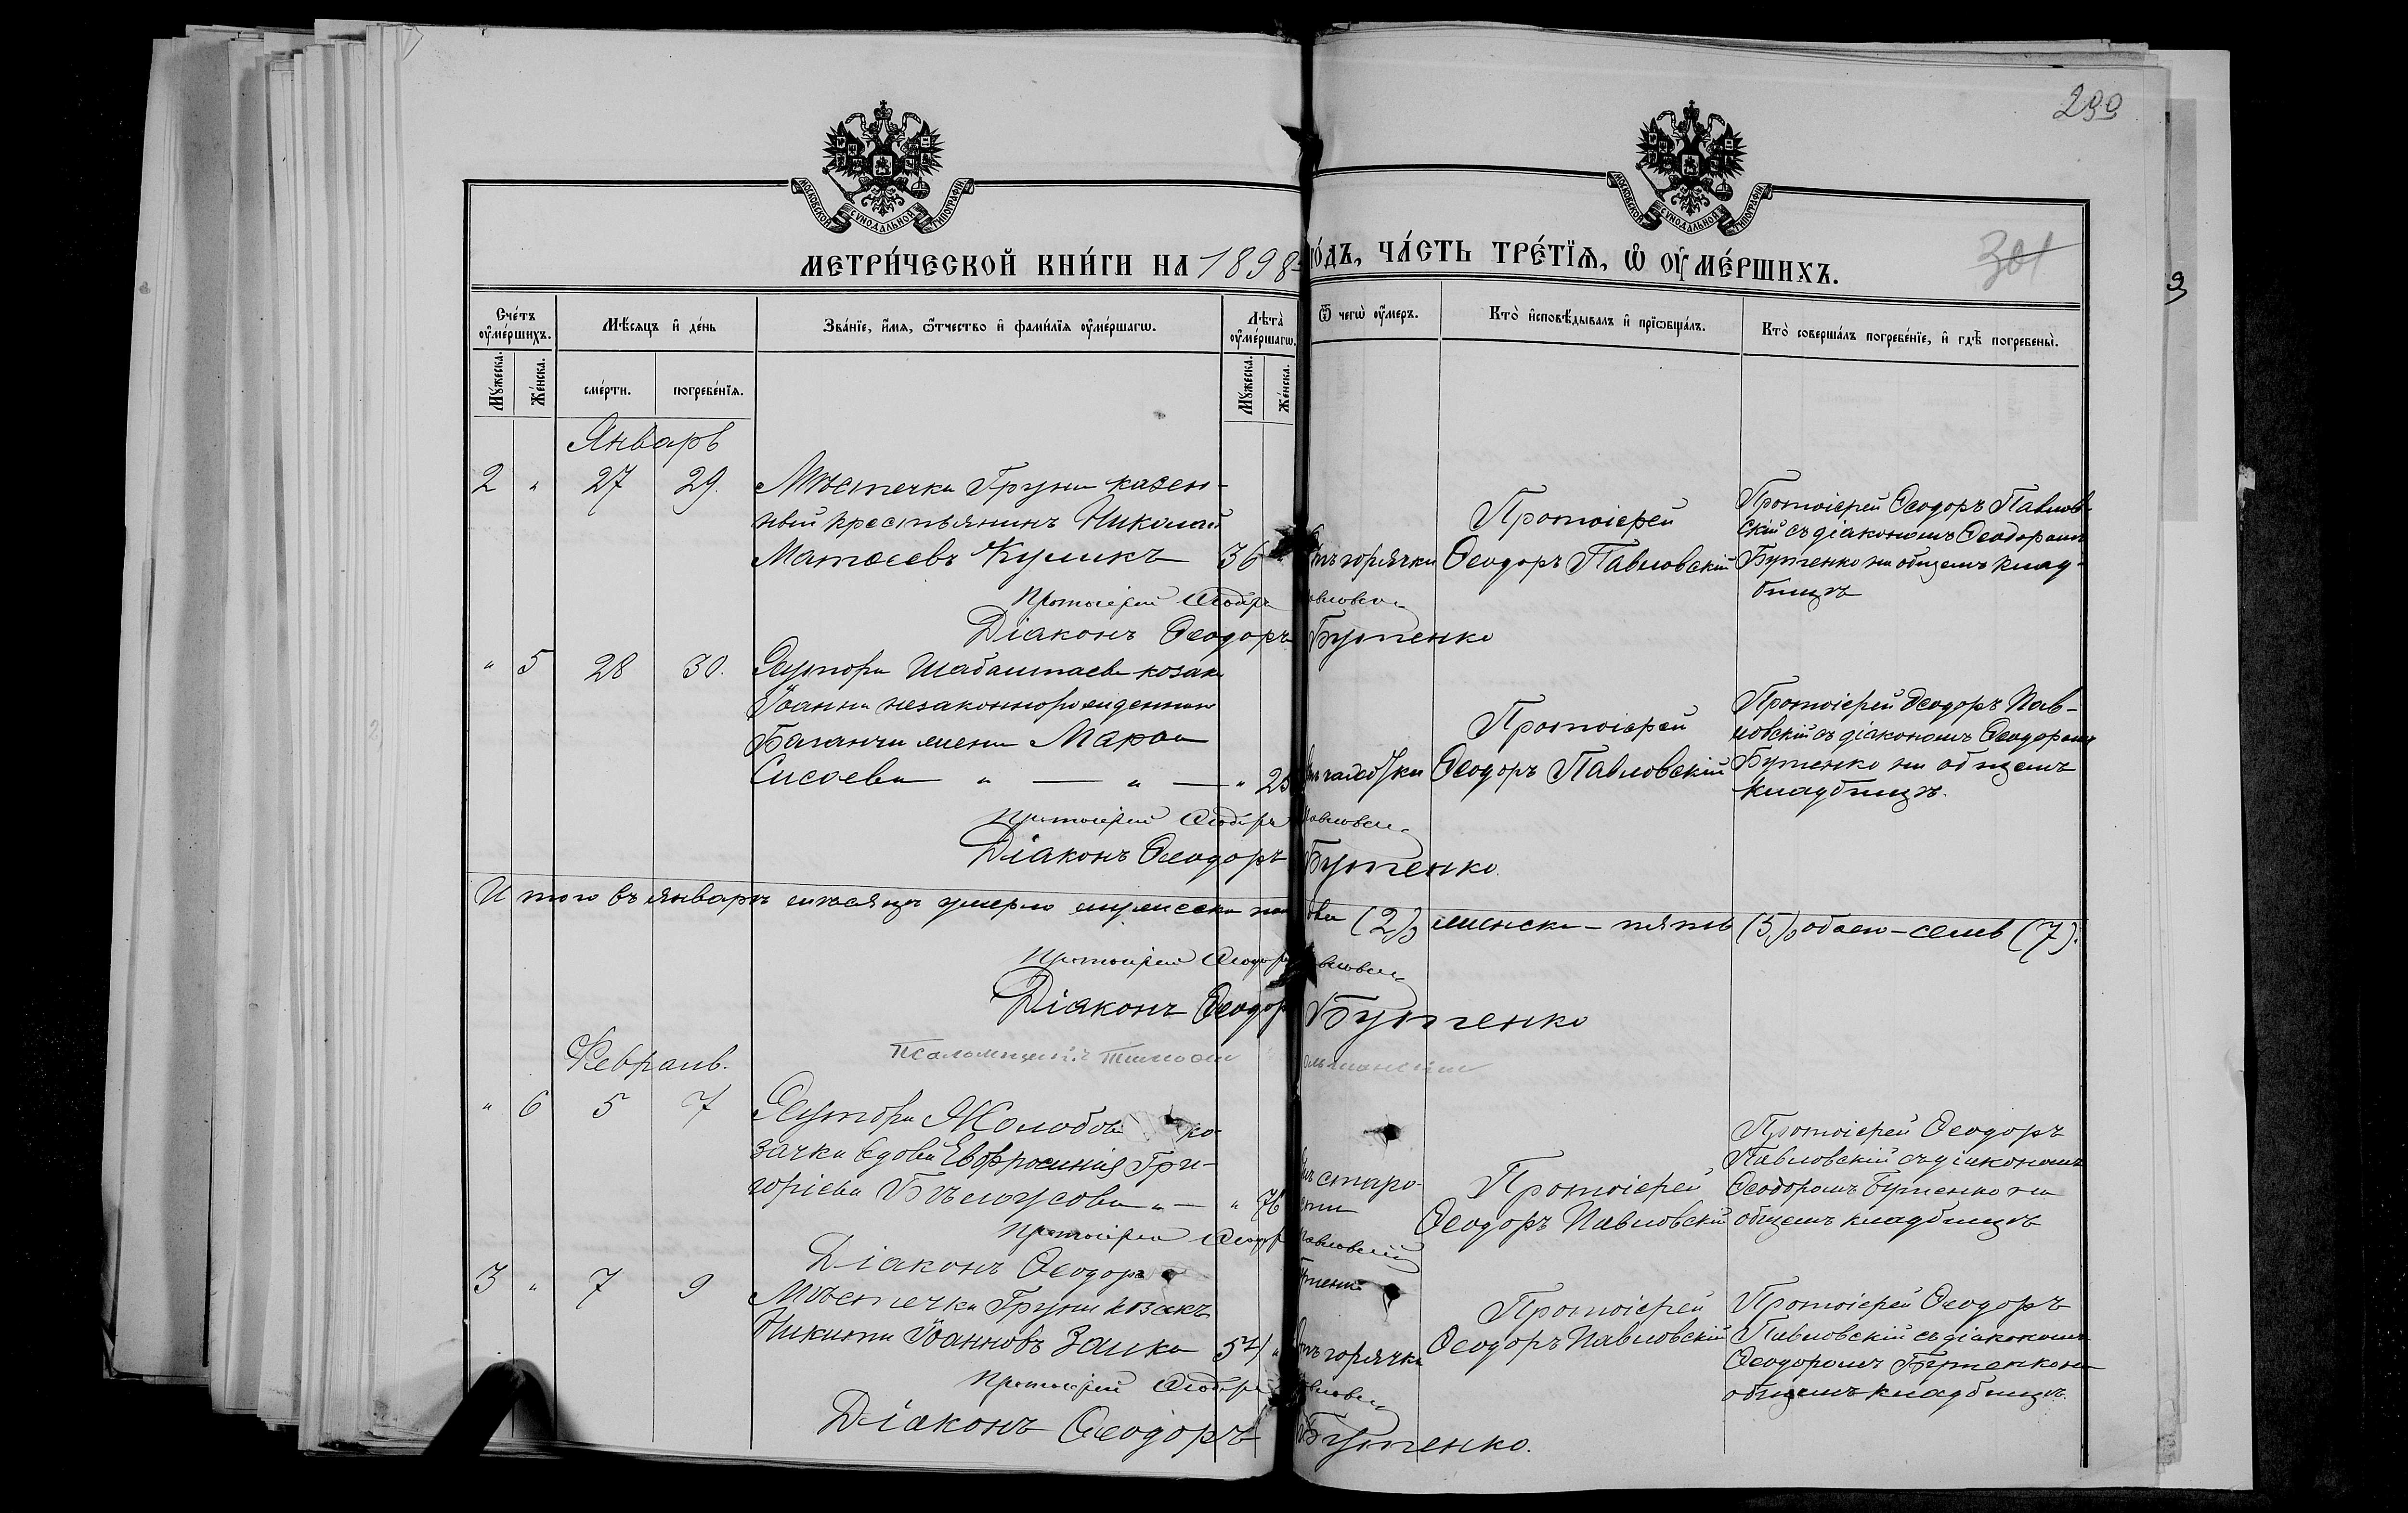 290
301
МОСКОВСКОЙ СѴНОДАЛЬНОЙ ТИПОГРАФІИ
МОСКОВСКОЙ СѴНОДАЛЬНОЙ ТИПОГРАФІИ
МЕТРИ́ЧЕСКОЙ КНИ́ГИ НА 1898 го́дъ, ЧА́СТЬ ТРЕ́ТЇѦ, Ѡ҆ ОУ҆МЕ́РШИХЪ.
Сче́тъ оу҆ме́ршихъ.
Мѣ́сѧцъ и҆ де́нь
Зва́нїе, и҆́мѧ, ѻ҆́тчество и҆ фами́лїѧ оу҆ме́ршагѡ.
Лѣта̀ оу҆ме́ршагѡ.
Ѿ чегѡ̀ оу҆́меръ.
Кто̀ и҆сповѣ́дывалъ и҆ прїѡбща́лъ.
Кто̀ соверша́лъ погребе́нїе, и҆ гдѣ̀ погребены̀.
Мꙋ́жеска. Же́нска.
сме́рти. погребе́нїѧ.
Мꙋ́жеска. Же́нска.
Январь
2 " 27 29. Мѣстечка Груни казен-
ный крестьянинъ Николай
Матѳеевъ Куликъ 36 " Отъ горячки
Протоіерей
Ѳеодоръ Павловскій
Протоіерей Ѳеодоръ Павлов-
скій съ діакономъ Ѳеодоромъ
Бутенко на общемъ клад-
бищѣ
Протоіерей Ѳеодоръ Павловскій
Діаконъ Ѳеодоръ Бутенко
" 5 28 30. Хутора Шабалтаева козака
Іоанна незаконнорожденнаго
жена Марѳа
Сисоева " — " — " 25
Протоіерей
Ѳеодоръ Павловскій
Протоіерей Ѳеодоръ Пав-
ловскій съ діакономъ Ѳеодоромъ
Бутенко на общемъ
кладбищѣ.
Протоіерей Ѳеодоръ Павловскій
Діаконъ Ѳеодоръ Бутенко.
И того въ январѣ мѣсяцѣ умерло мужеска пола два (2), женска – пять (5), обоего – семь (7).
Протоіерей Ѳеодоръ Павловскій
Діаконъ Ѳеодоръ Бутенко
Псаломщикъ
Февраль.
" 6 5 7 Хутора ко-
зачка вдова Евфросинія Гри-
горіева Бѣлоусова " — " 76 Отъ старо-
сти
Протоіерей
Ѳеодоръ Павловскій
Протоіерей Ѳеодоръ
Павловскій съ діакономъ
Ѳеодоромъ Бутенко на
общемъ кладбищѣ
Протоіерей Ѳеодоръ Павловскій
Діаконъ Ѳеодоръ Бутенко
3 " 7 9 Мѣстечка Груни козакъ
Никита Іоанновъ Заика 54 " Отъ горячки
Протоіерей
Ѳеодоръ Павловскій
Протоіерей Ѳеодоръ
Павловскій съ діакономъ
Ѳеодоромъ Бутенко на
общемъ кладбищѣ.
Протоіерей Ѳеодоръ Павловскій
Діаконъ Ѳеодоръ Бутенко.